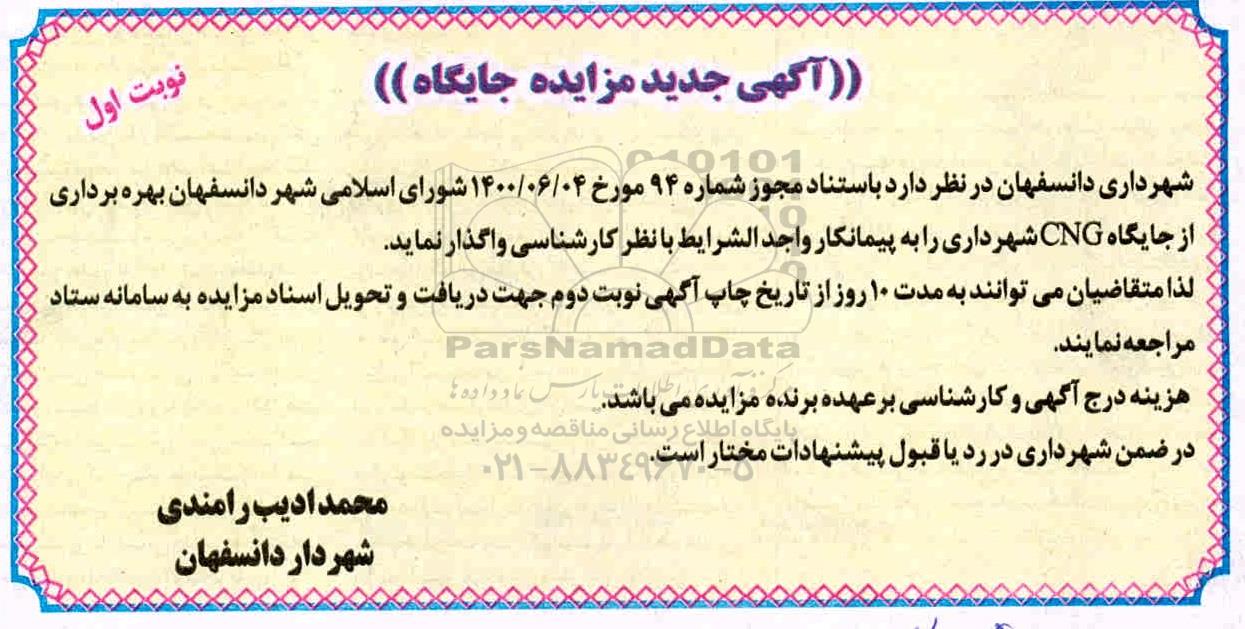 ((آگهی جدید مزایده جایگاه))
نوبت اول
شهرداری دانسفهان در نظر دارد باستناد مجوز شماره ۹۴ مورخ ۱۴۰۰/۰۶/۰۴ شورای اسلامی شهر دانسفهان بهره برداری
از جایگاه CNG شهرداری را به پیمانکار واجد الشرایط با نظر کارشناسی واگذار نماید.
لذا متقاضیان می توانند به مدت ۱۰ روز از تاریخ چاپ آگهی نوبت دوم جهت دریافت و تحویل اسناد مزایده به سامانه ستاد
مراجعه نمایند.
هزینه درج آگهی و کارشناسی بر عهده برنده مزایده می باشد.
در ضمن شهرداری در رد یا قبول پیشنهادات مختار است.
محمد ادیب رامندی
شهردار دانسفهان
ParsNamadData
پایگاه اطلاع رسانی مناقصه و مزایده
۰۲۱-۸۸۳۴۹۶۷۰-۵